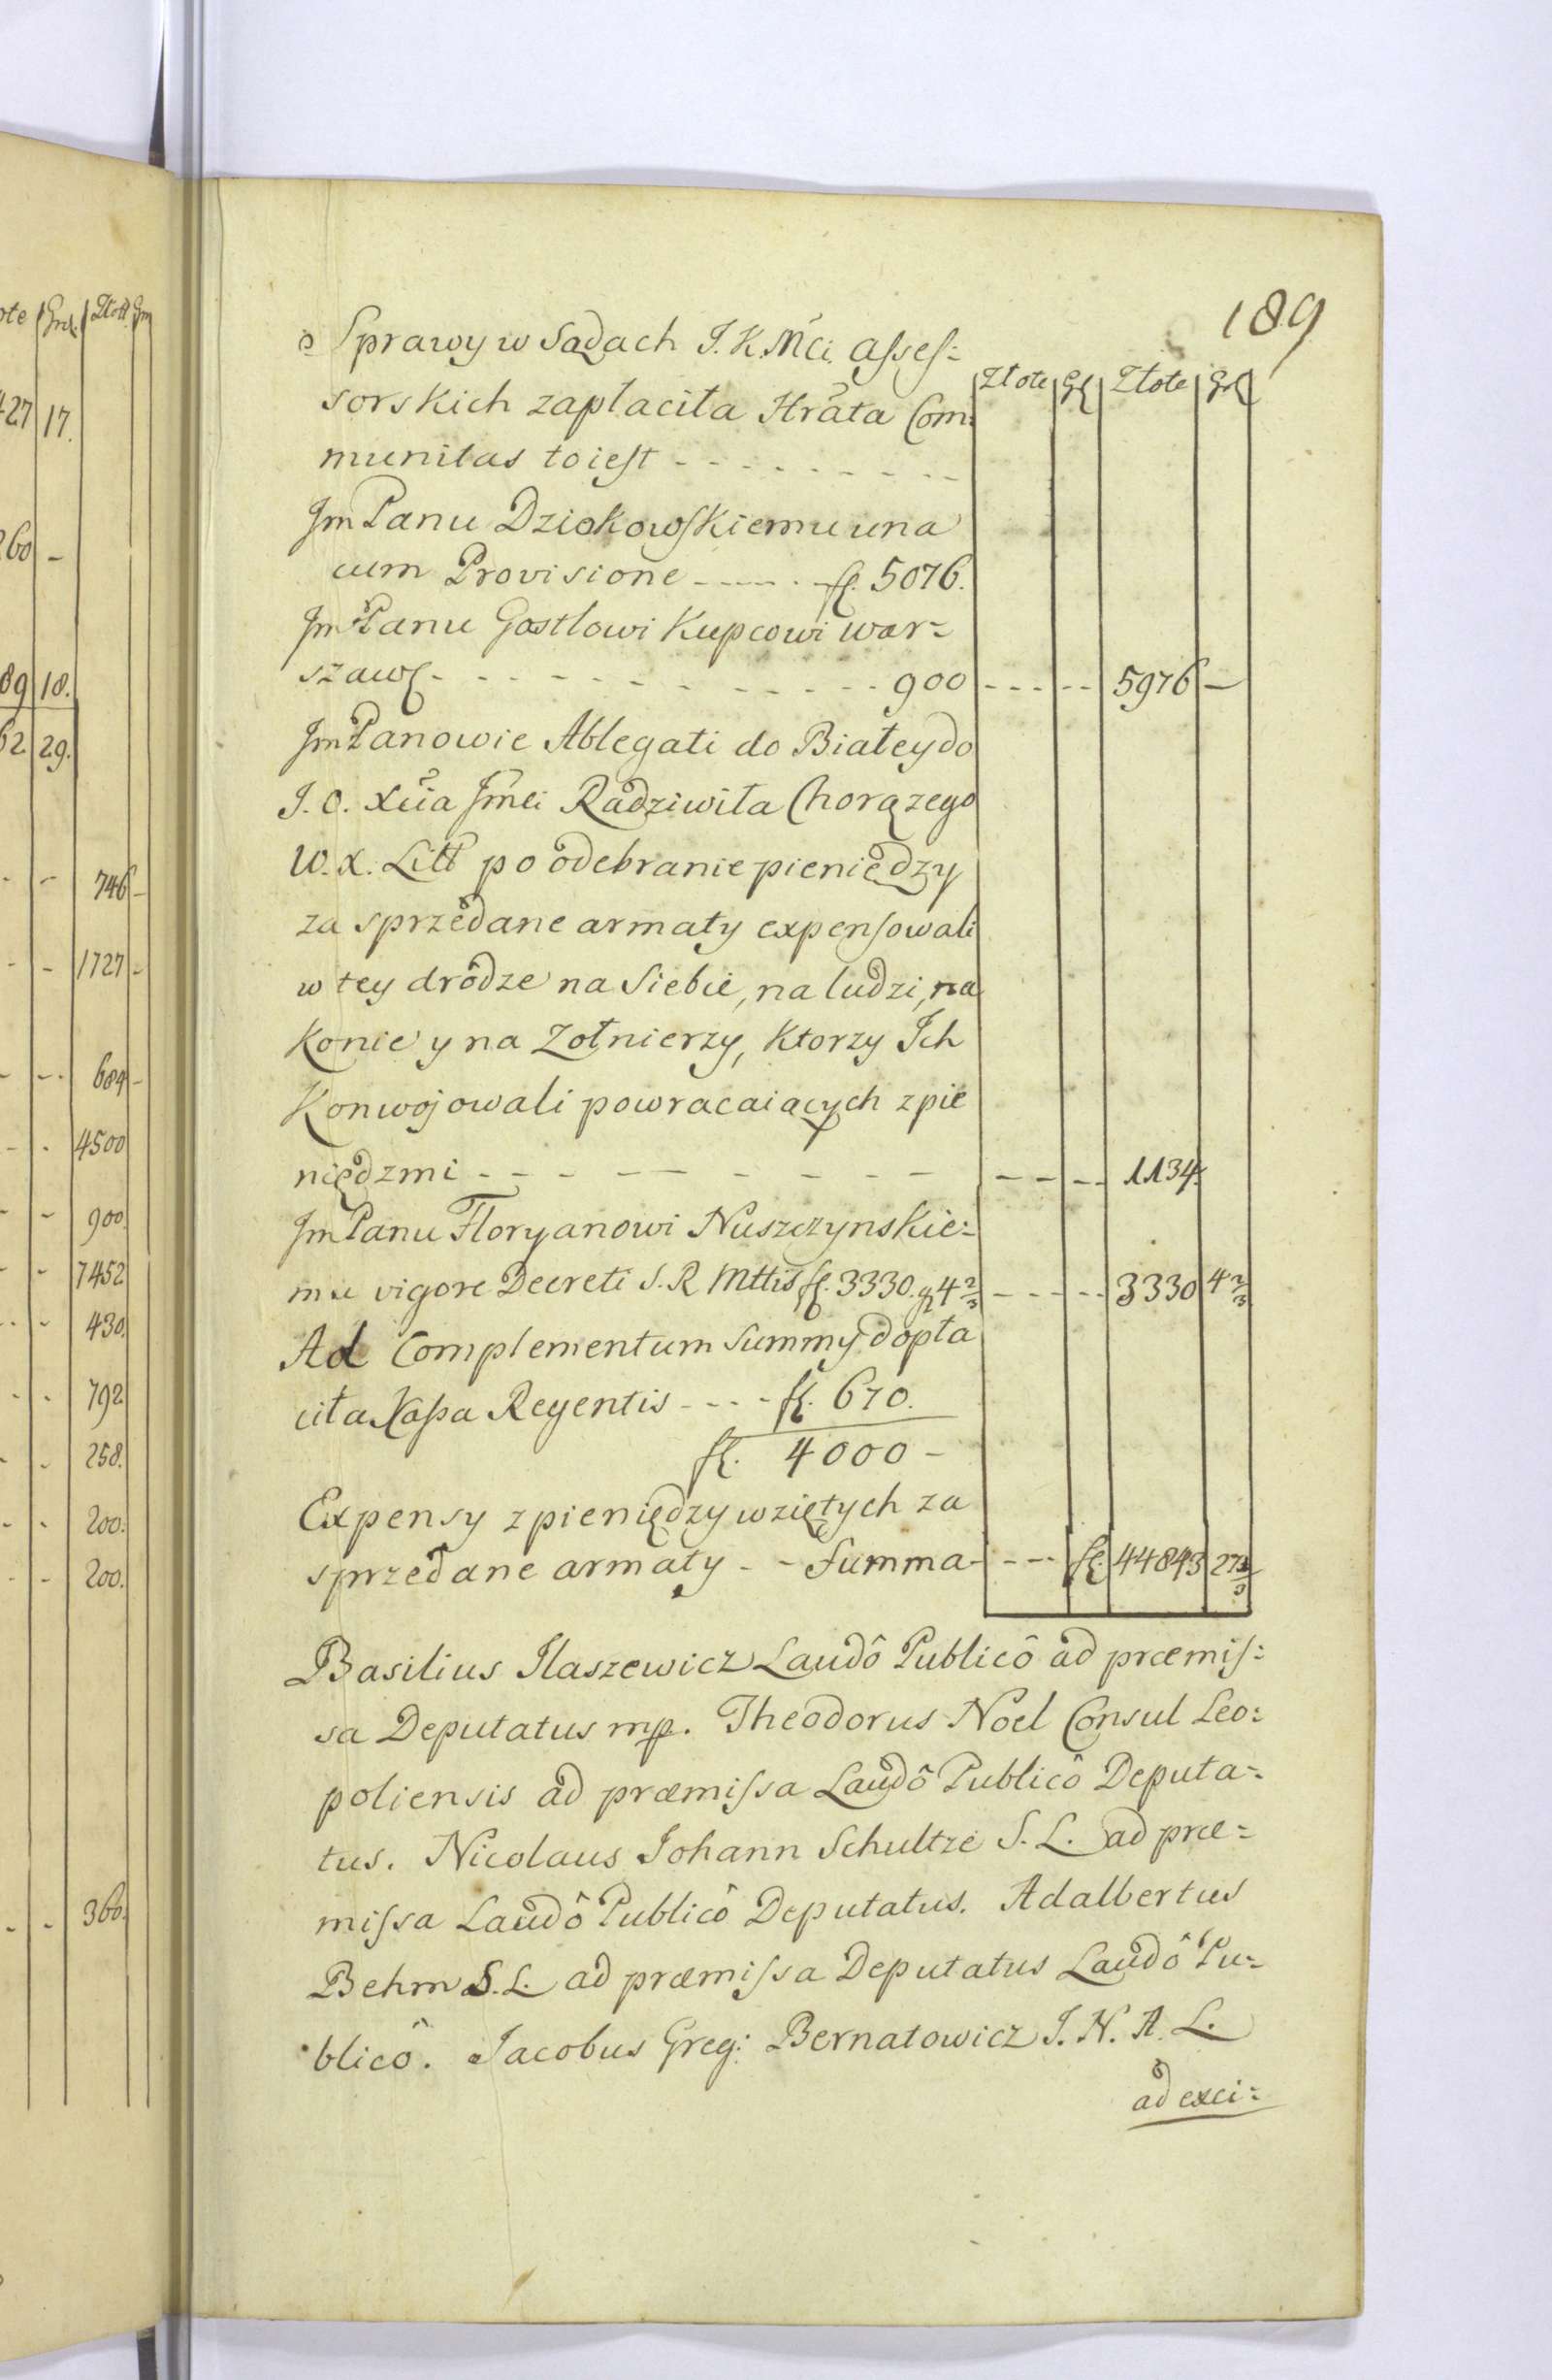 189
o Sprawy w Sądach J. K. Mći. assес=
Złote | gr | Złote | gr
sorskich zapłaciła Hrata Com=
munitas to iest - - - - - - - - -
Jm Panu Dziokowskiemu una
cum Provisione - - - - fl. 5076.
Jm Panu Gostlowi Kupcowi war=
szaws - - - - - - - - - - - 900 - - - - - 5976 -
Jm Panowie Ablegati do Białey do
J. O. Xcia Jmći Radziwiła Chorązego
W. X. Litt po odebranie pieniędzy
za sprzedane armaty expensowali
w tey drodze na Siebie, na ludzi, na
Konie y na Zołnierzy, Ktorzy Ich
Konwojowali powracaiących z pie
niędzmi - - - - - - - - - - - - 1134.
Jm Panu Floryanowi Nuszczynskie=
mu vigore Decreti S. R Mttis fl. 3330. gr 4 2/3 - - - - - 3330 | 4 2/3
Ad Complementum Summy dopła
ciła Kassa Regentis - - - - fl. 670.
fl. 4000 -
Expensy z pieniędzy wziętych za
sprzedane armaty - - Summa - - - - fl. 44843 | 27 2/3
Basilius Ilaszewicz Laudô Publicô ad præmis=
sa Deputatus mp. Theodorus Noel Consul Leo=
poliensis ad præmissa Laudô Publicô Deputa=
tus. Nicolaus Johann Schultze S. L. ad præ=
missa Laudô Publicô Deputatus. Adalbertus
Behm S. L. ad præmissa Deputatus Laudô Pu=
blicô. Jacobus Greg: Bernatowicz J. N. A. L.
ad exci=
17.
18.
29.
746 -
1727 -
684 -
4500
900.
7452
430.
792
258.
200.
200.
360.